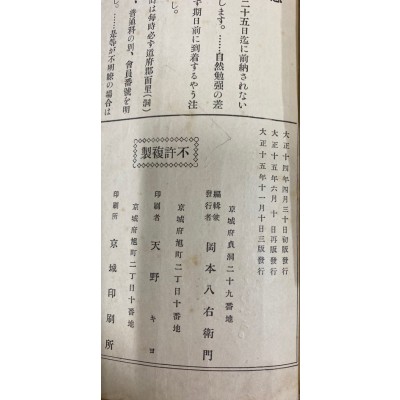 二十五日迄に前納されない
します。……自然勉强の差
す期日前に到着するやう注
じ。
時は每時必ず道府郡面里(洞
、普通科の別、會員番號を明
し。……是等が不明瞭の場合は
大正十四年四月三十日初版發行
大正十五年六月十日再版發行
大正十五年十一月十日三版發行
不許複製
京城府貞洞二十九番地
編輯兼
發行者 岡本八右衛門
京城府旭町二丁目十番地
印刷者 天野キヨ
京城府旭町二丁目十番地
印刷所 京城印刷所